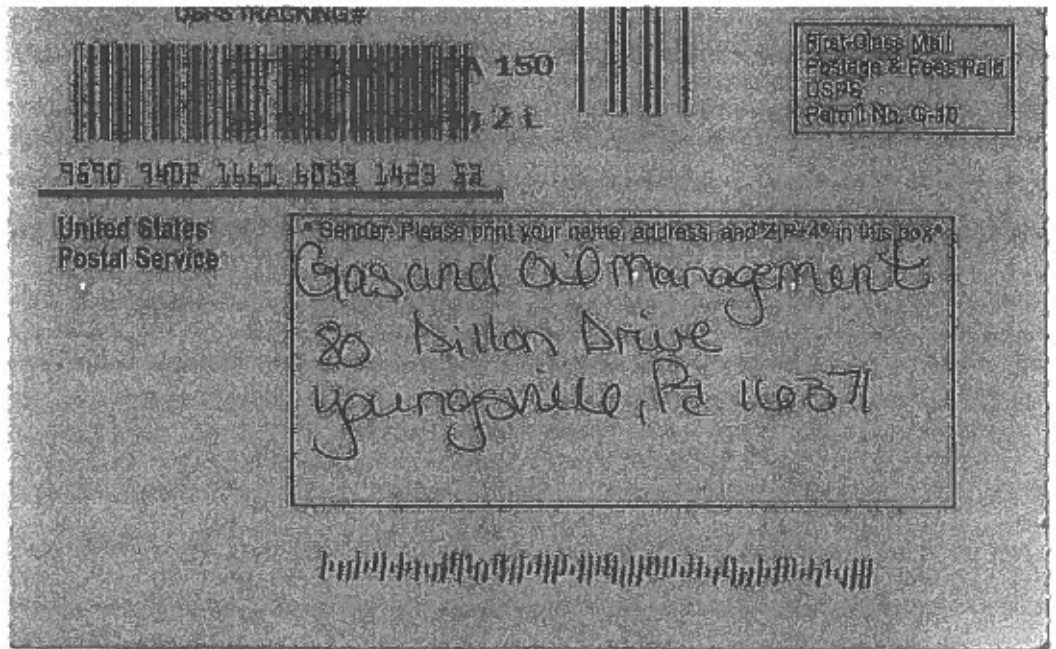 USPS TRACKING #
PA 150
2 L
First-Class Mail
Postage & Fees Paid
USPS
Permit No. G-10
9590 9402 1661 6053 1423 52
United States
Postal Service
* Sender: Please print your name, address, and ZIP+4® in this box*
Gas and Oil Management
80 Dillon Drive
Youngsville, Pa 16371